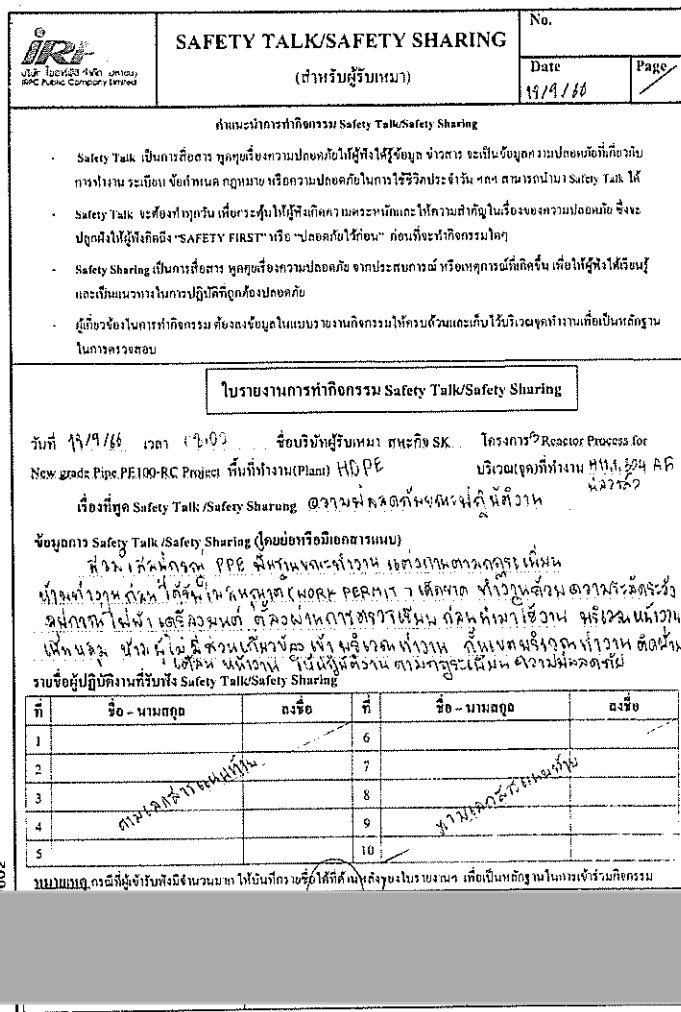 IRPC
บริษัท ไออาร์พีซี จำกัด (มหาชน)
IRPC Public Company Limited
SAFETY TALK/SAFETY SHARING
(สำหรับผู้รับเหมา)
No.
Date
Page
19/9/66
คำแนะนำการทำกิจกรรม Safety Talk/Safety Sharing
- Safety Talk เป็นการสื่อสาร พูดคุยเรื่องความปลอดภัยให้ผู้ฟังได้รู้ข้อมูล ข่าวสาร จะเป็นข้อมูลความปลอดภัยที่เกี่ยวกับ
การทำงาน ระเบียบ ข้อกำหนด กฎหมาย หรือความปลอดภัยในการใช้ชีวิตประจำวัน ฯลฯ สามารถนำมา Safety Talk ได้
- Safety Talk จะต้องทำทุกวัน เพื่อกระตุ้นให้ผู้ฟังเกิดความตระหนักและให้ความสำคัญในเรื่องของความปลอดภัย ซึ่งจะ
ปลูกฝังให้ผู้ฟังคิดถึง "SAFETY FIRST" หรือ "ปลอดภัยไว้ก่อน" ก่อนที่จะทำกิจกรรมใดๆ
- Safety Sharing เป็นการสื่อสาร พูดคุยเรื่องความปลอดภัย จากประสบการณ์ หรือเหตุการณ์ที่เกิดขึ้น เพื่อให้ผู้ฟังได้เรียนรู้
และเป็นแนวทางในการปฏิบัติที่ถูกต้องปลอดภัย
- ผู้เกี่ยวข้องในการทำกิจกรรม ต้องลงข้อมูลในแบบรายงานกิจกรรมให้ครบถ้วนและเก็บไว้บริเวณจุดทำงานเพื่อเป็นหลักฐาน
ในการตรวจสอบ
ใบรายงานการทำกิจกรรม Safety Talk/Safety Sharing
วันที่ 19/9/66 เวลา ชื่อบริษัทผู้รับเหมา สหะกิจ SK. โครงการ 3 Reactor Process for
New grade Pipe PE100-RC Project พื้นที่ทำงาน(Plant) HDPE บริเวณ(จุด)ที่ทำงาน
เรื่องที่พูด Safety Talk /Safety Sharung ความปลอดภัยขณะปฏิบัติงาน
ข้อมูลการ Safety Talk /Safety Sharing (โดยย่อหรือมีเอกสารแนบ)
สวมใส่อุปกรณ์ PPE พื้นฐานขณะทำงาน แต่งกายตามกฎระเบียบ
ห้ามทำงานก่อนได้รับใบอนุญาต (WORK PERMIT) เด็ดขาด ทำงานด้วยความระมัดระวัง
อุปกรณ์ไฟฟ้า เครื่องยนต์ ต้องผ่านการตรวจเชี่ยม ก่อนนำมาใช้งาน บริเวณหน้างาน
ห้ามผู้ไม่มีส่วนเกี่ยวข้องเข้าบริเวณทำงาน กั้นเขตบริเวณทำงาน ติดป้าย
เตือน หน้างาน ให้ปฏิบัติงานตามกฎระเบียบ ความปลอดภัย
รายชื่อผู้ปฏิบัติงานที่รับฟัง Safety Talk/Safety Sharing
ที่ ชื่อ – นามสกุล ลงชื่อ ที่ ชื่อ – นามสกุล ลงชื่อ
1 6
2 7
3 8
4 9
5 10
ตามเอกสารแนบท้าย
ตามเอกสารแนบท้าย
หมายเหตุ กรณีที่ผู้เข้ารับฟังมีจำนวนมาก ให้บันทึกรายชื่อได้ที่ด้านหลังของใบรายงานฯ เพื่อเป็นหลักฐานในการเข้าร่วมกิจกรรม
002